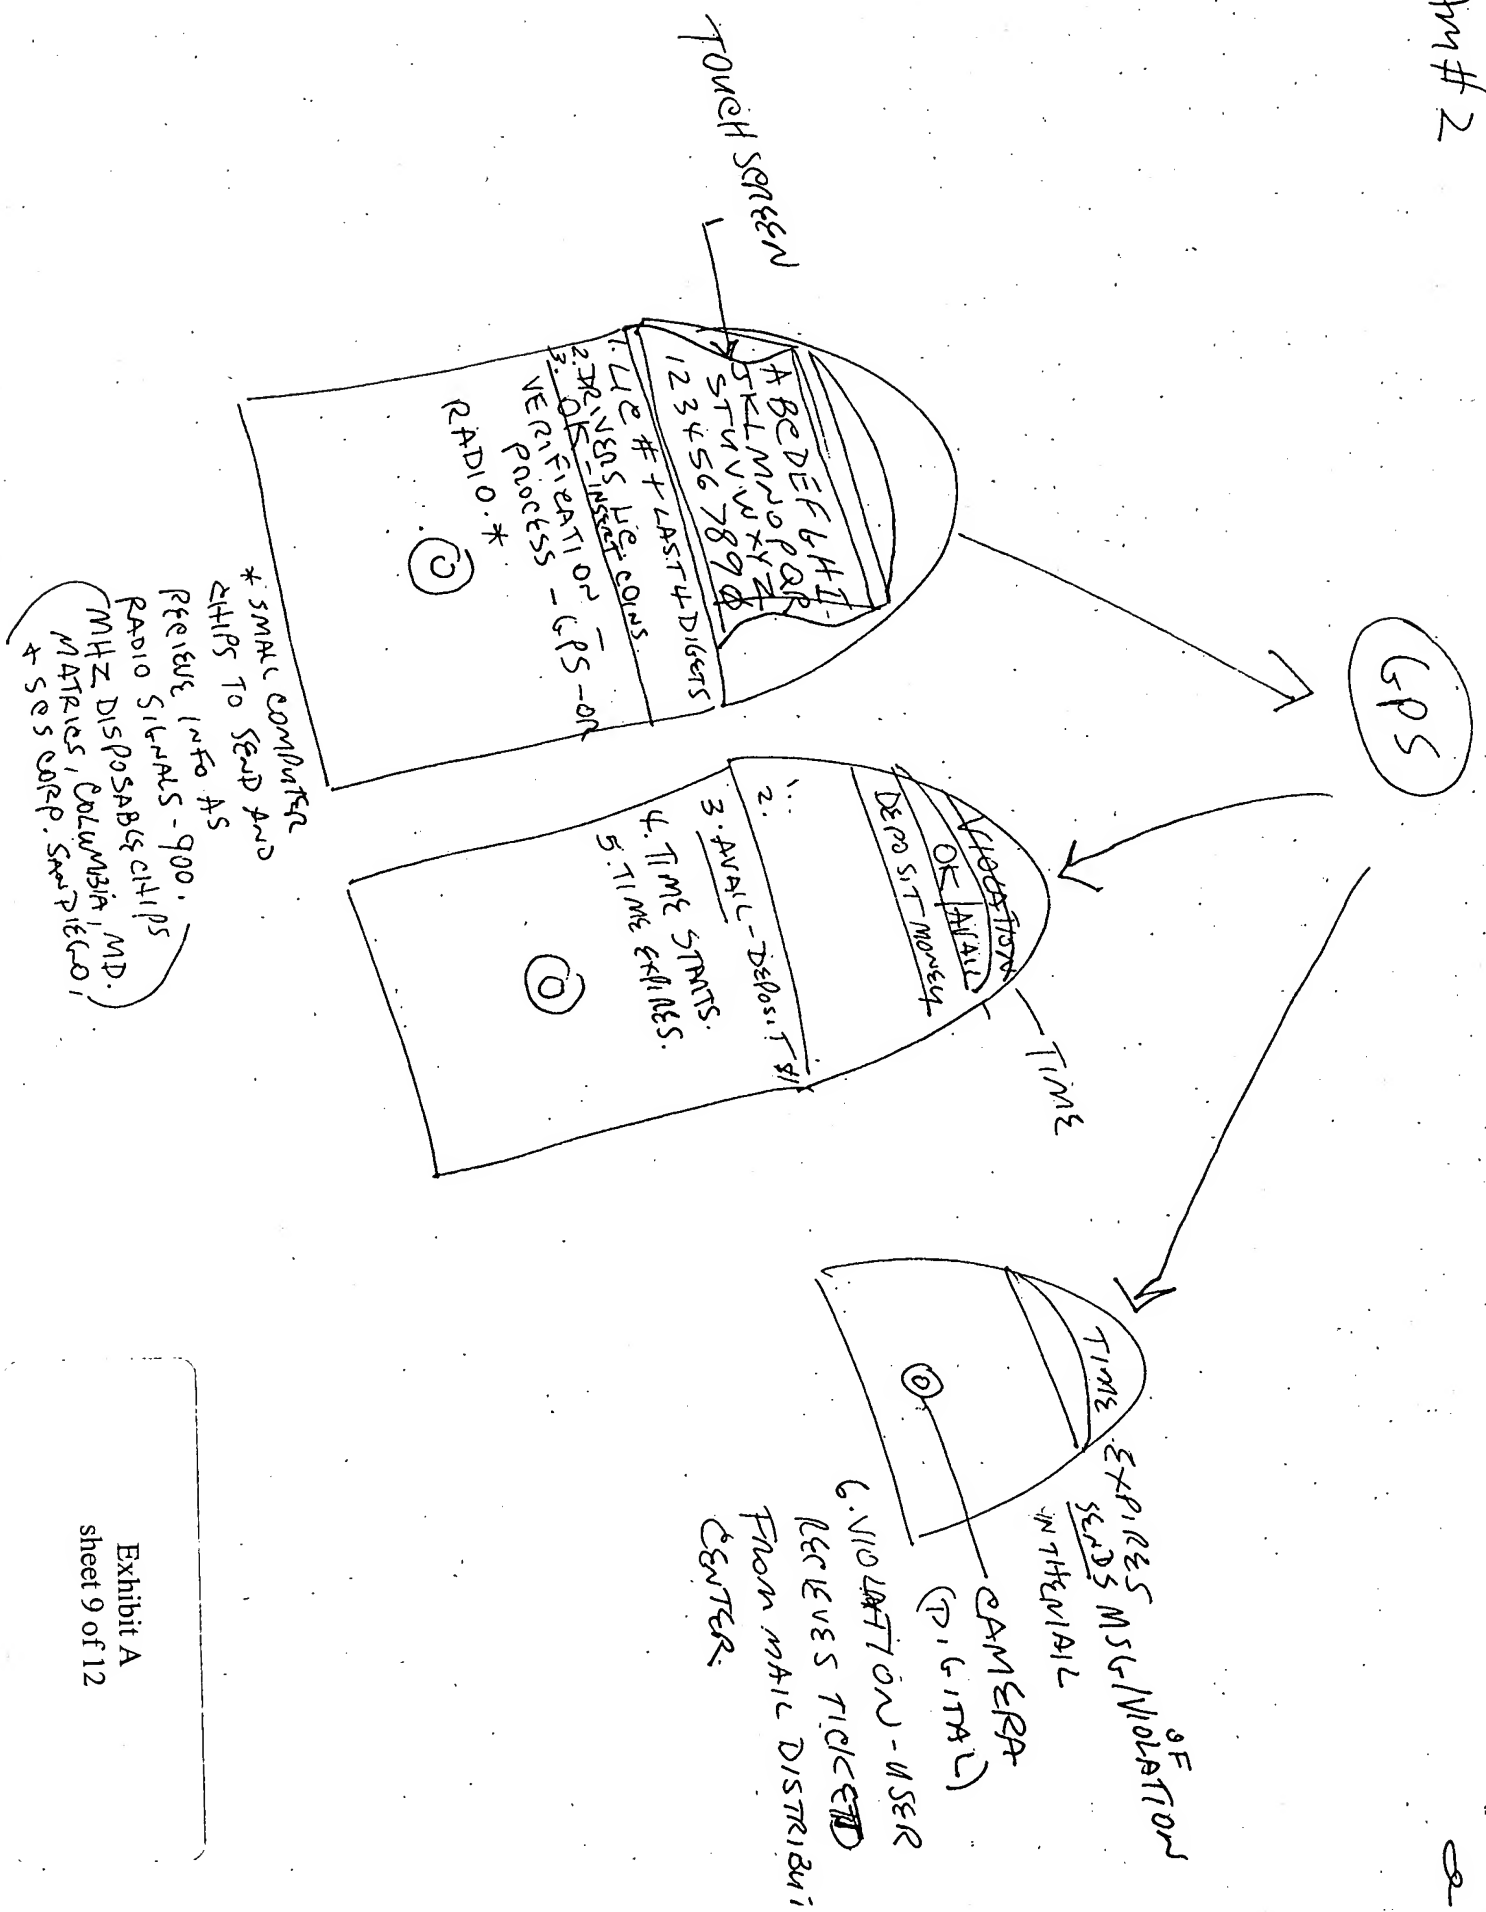 #2
GPS
TOUCH SCREEN
ABCDEFGHI
JKLMNOPQR
STUVWXYZ
1234567890
1. LIC # + LAST 4 DIGETS
2. DRIVERS LIC.
3. OK - INSERT COINS
VERIFICATION -
PROCESS - GPS - OR
RADIO. *
* SMALL COMPUTER
CHIPS TO SEND AND
RECIEVE INFO AS
RADIO SIGNALS - 900.
MHZ DISPOSABLE CHIPS
MATRICS, COLUMBIA, MD.
+ SCS CORP. SAN DIEGO,
VIOLATION
OK / AVAIL
DEPOSIT MONEY
TIME
1.
2.
3. AVAIL - DEPOSIT $
4. TIME STARTS.
5. TIME EXPIRES.
TIME EXPIRES
SENDS MSG/VIOLATION
OF
IN THE MAIL
CAMERA
(DIGITAL)
6. VIOLATION - USER
RECIEVES TICKET
FROM MAIL DISTRIBUT
CENTER.
Exhibit A
sheet 9 of 12